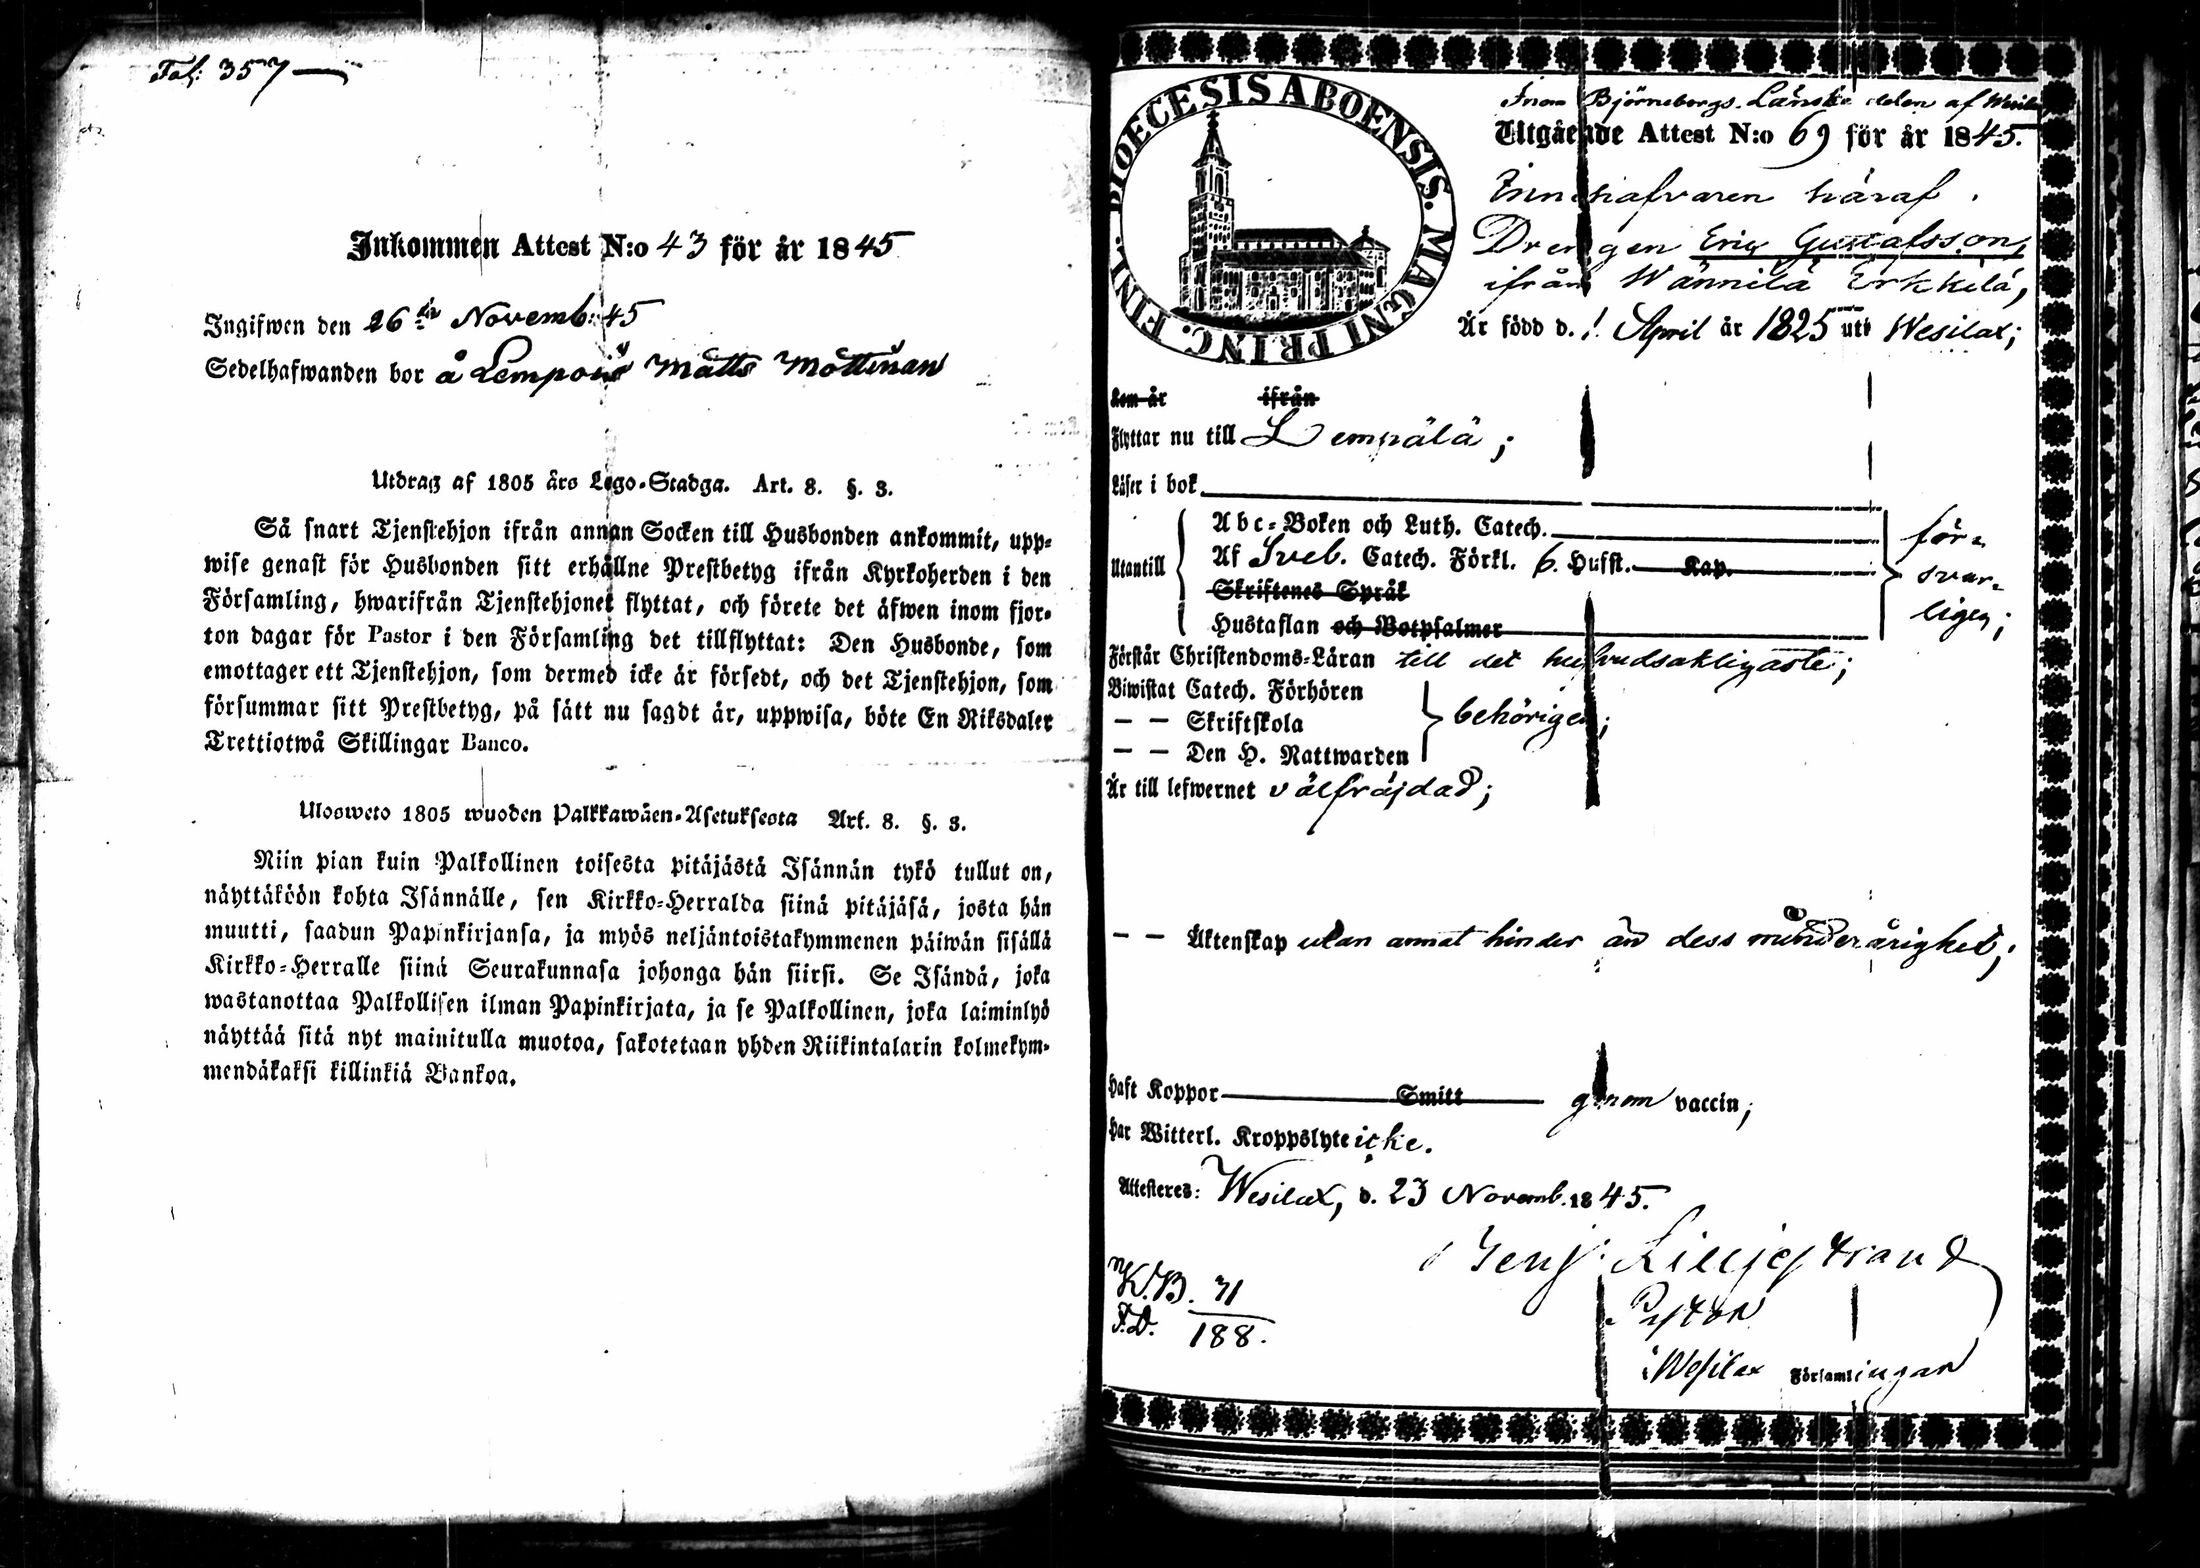 Fol: 357
Inkommen Attest N:o 43 för år 1845
Ingifwen den 26 Novemb: 45
Sedelhafwanden bor å Lempois Matts Mattinan
Utdrag af 1805 års Lego-Stadga. Art. 8. §. 3.
Så snart Tjenstehjon ifrån annan Socken till Husbonden ankommit, upp-
wise genast för Husbonden sitt erhållne Prestbetyg ifrån Kyrkoherden i den
Församling, hwarifrån Tjenstehjonet flyttat, och förete det äfwen inom fjor-
ton dagar för Pastor i den Församling det tillflyttat: Den Husbonde, som
emottager ett Tjenstehjon, som dermed icke är försedt, och det Tjenstehjon, som
försummar sitt Prestbetyg, på sätt nu sagdt är, uppwisa, böte En Riksdaler
Trettiotwå Skillingar Banco.
Ulosweto 1805 wuoden Palkkawäen-Asetuksesta Art. 8. §. 3.
Niin pian kuin Palkollinen toisesta pitäjästä Isännän tykö tullut on,
näyttäköön kohta Isännälle, sen Kirkko-Herralda siinä pitäjäsä, josta hän
muutti, saadun Papinkirjansa, ja myös neljäntoistakymmenen päiwän sisällä
Kirkko-Herralle siinä Seurakunnasa johonga hän siirsi. Se Isändä, joka
wastanottaa Palkollisen ilman Papinkirjata, ja se Palkollinen, joka laiminlyö
näyttää sitä nyt mainitulla muotoa, sakotetaan yhden Riikintalarin kolmekym-
mendäkaksi killinkiä Bankoa.
DIOECESIS ABOENSIS. MAGNI PRINC. FINL.
Inom Björneborgs Länske delen af Wesila
Utgående Attest N:o 69 för år 1845.
Innehafvaren häraf
Drengen Eric Gustafsson,
ifrån Wännilä Erkkilä,
Är född d. 1 April år 1825 uti Wesilax;
Kom år ifrån
Flyttar nu till Lempälä;
Läser i bok
Utantill
Abc-Boken och Luth. Catech.
Af Sveb. Catech. Förkl. 6. Hufst. Kap.
Skriftenes Språk
Hustaflan och Botpsalmer
för-
svar-
ligen;
Förstår Christendoms-Läran till det hufvudsakligaste;
Biwistat Catech. Förhören
— — Skriftskola
— — Den H. Nattwarden
behörigen;
Är till lefwernet välfräjdad;
— — Äktenskap utan annat hinder än dess minderårighet;
Haft Koppor Smitt genom vaccin;
Har Witterl. Kroppslyte icke.
Attesteres: Wesilax, d. 23 Novemb. 1845.
Benj. Lilljestrand
Pastor
i Wesilax Församlingar
K.B. 71
F.D. 188.